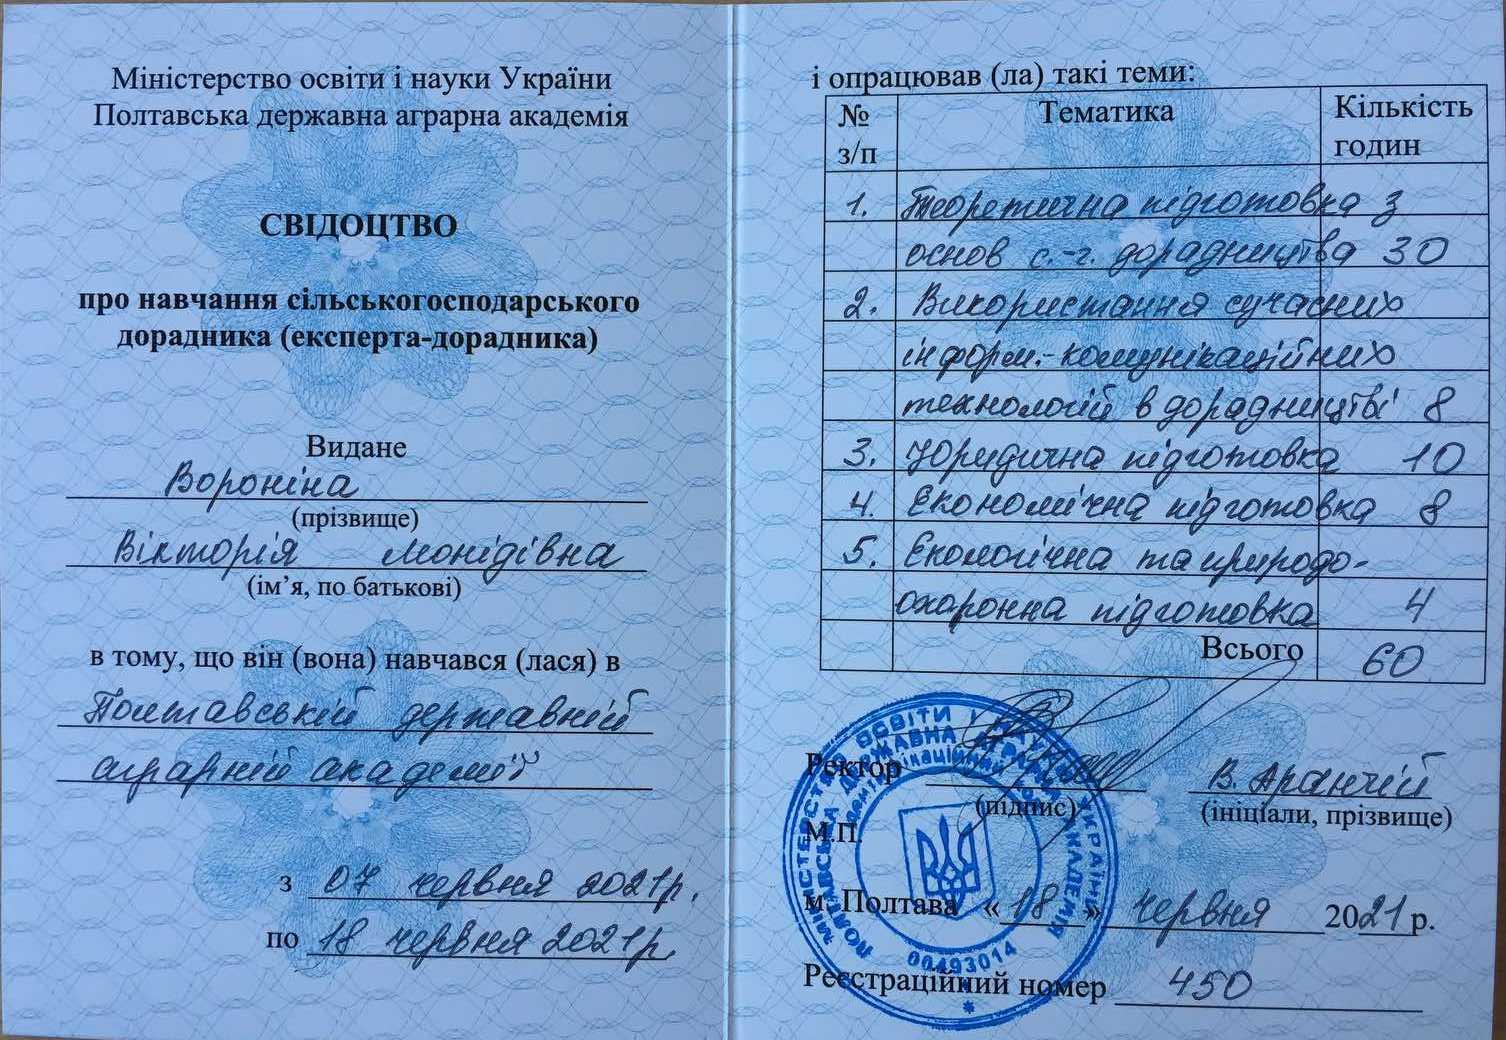 Міністерство освіти і науки України
Полтавська державна аграрна академія
СВІДОЦТВО
про навчання сільськогосподарського
дорадника (експерта-дорадника)
Видане
Вороніна
(прізвище)
Вікторія Леонідівна
(ім’я, по батькові)
в тому, що він (вона) навчався (лася) в
Полтавській державній
аграрній академії
з 07 червня 2021р.
по 18 червня 2021р.
і опрацював (ла) такі теми:
№ з/п Тематика Кількість годин
1. Теоретична підготовка з
основ с.-г. дорадництва 30
2. Використання сучасних
інформ.-комунікаційних
технологій в дорадництві 8
3. Юридична підготовка 10
4. Економічна підготовка 8
5. Екологічна та природо-
охоронна підготовка 4
Всього 60
Ректор В. Аранчій
(підпис) (ініціали, прізвище)
М.П.
м. Полтава «18» червня 2021 р.
Реєстраційний номер 450
МІНІСТЕРСТВО ОСВІТИ І НАУКИ УКРАЇНИ
ПОЛТАВСЬКА ДЕРЖАВНА АГРАРНА АКАДЕМІЯ
Ідентифікаційний код
00493014